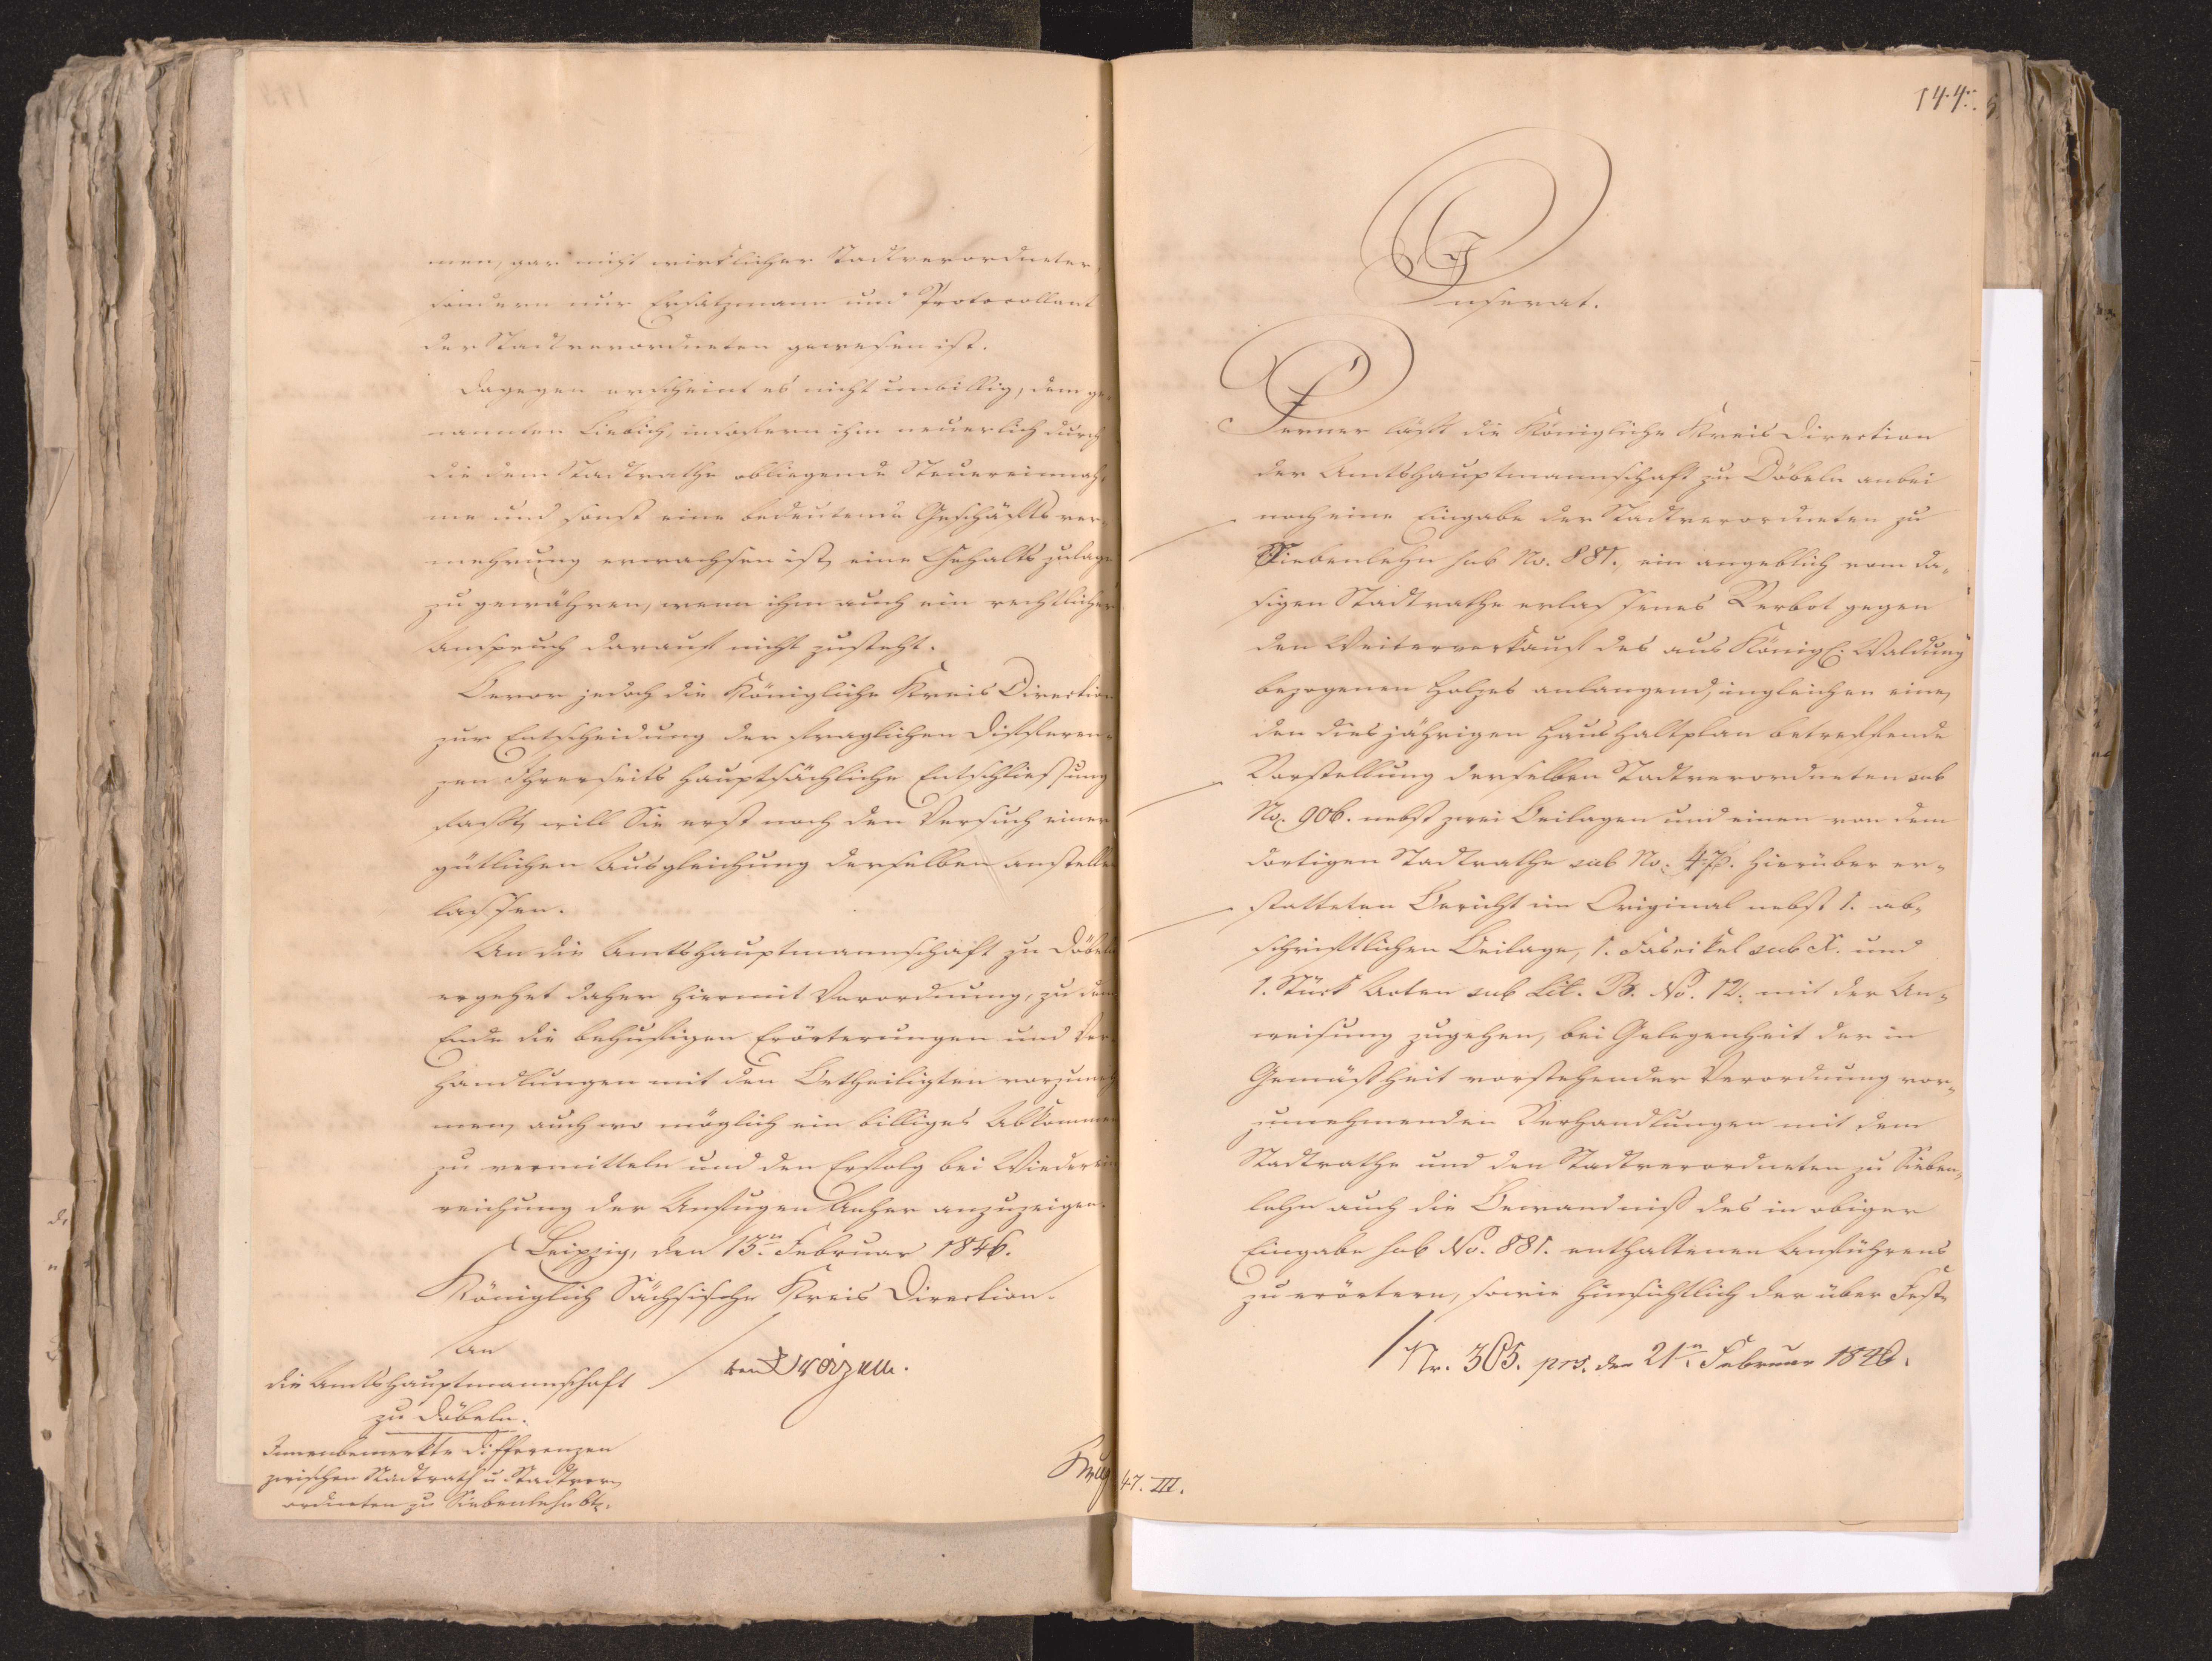 men, gar nicht wirklicher Stadtverordneter,
sondern nur Ersatzmann und Protocollant
der Stadtverordneten gewesen ist.
Dagegen erscheint es nicht unbillig, dem ge-
nannten Liebich, insofern ihm neuerlich durch
die dem Stadtrathe obliegende Steuereinnah-
me und sonst eine bedeutende Geschäftsver-
mehrung erwachsen ist, eine Gehaltszulage
zu gewähren, wenn ihm auch ein rechtlicher
Anspruch darauf nicht zusteht.
Bevor jedoch die Königliche Kreis Direction
zur Entscheidung der fraglichen Differen-
zen Ihrerseits hauptsächliche Entschließung
faßt, will Sie erst noch den Versuch einer
gütlichen Ausgleichung derselben anstellen
lassen.
An die Amtshauptmannschaft zu Döbeln
ergehet daher hiermit Verordnung, zu dem
Ende die behufigen Erörterungen und Ver-
handlungen mit den Betheiligten vorzuneh-
men, auch wo möglich ein billiges Abkommen
zu vermitteln und den Erfolg bei Wiederein-
reichung der Anfugen Anher anzuzeigen.
Leipzig, den 13n Februar 1846.
Königlich Sächsische Kreis Direction.
An
die Amtshauptmannschaft
zu Döbeln.
Innenbemerkte Differenzen
zwischen Stadtrath u Stadtver-
ordneten zu Siebenlehn btr.
Krug
144.
Inserat.
Ferner läßt die Königliche Kreis Direction
der Amtshauptmannschaft zu Döbeln anbei
noch eine Eingabe der Stadtverordneten zu
Siebenlehn sub No. 881., ein angeblich vom da-
sigen Stadtrathe erlassenes Verbot gegen
den Weiterverkauf des aus Königl. Waldung
bezogenen Holzes anlangend, ingleichen eine,
den diesjährigen Haushaltplan betreffende
Vorstellung derselben Stadtverordneten sub
No. 906. nebst zwei Beilagen und einen von dem
dortigen Stadtrathe sub No. hierüber er-
statteten Bericht im Original nebst 1. ab-
schriftlichen Beilage, 1. Fascikel sub und
1. Stück Acten sub Lit. B. No. 12. mit der An-
weisung zugehen, bei Gelegenheit der in
Gemäßheit vorstehender Verordnung vor-
zunehmenden Verhandlungen mit dem
Stadtrathe und den Stadtverordneten zu Sieben-
lehn auch die Bewandniß des in obiger
Eingabe sub No. 881. enthaltenen Anführens
zu erörtern, sowie hinsichtlich der über Fest-
Nr. 365. prs. den 21n Februar 1846.
47. III.